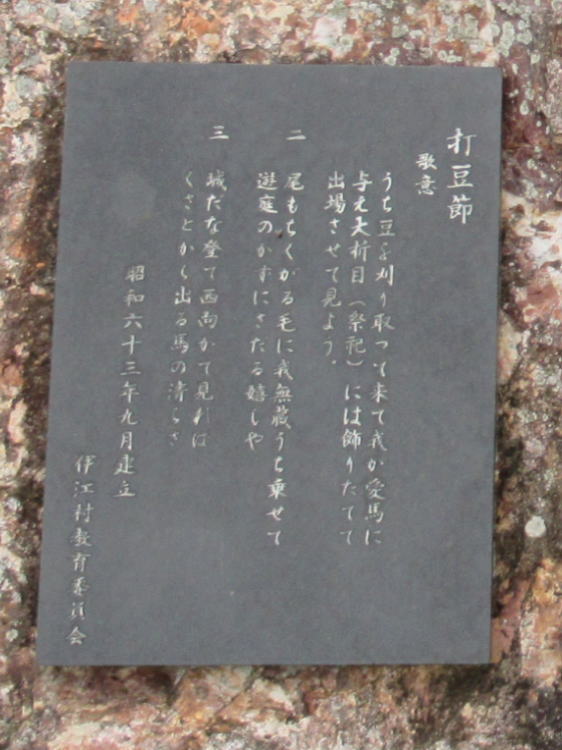 打豆節
歌意
うち豆を刈り取って来て我が愛馬に
与え大折目（祭祀）には飾りたてて
出場させて見よう。
二　尾もちくがる毛に我無蔵うち乗せて
遊庭のかずにさたる嬉しや
三　城だな登て西向かて見れば
くさとから出る馬の清らさ
昭和六十三年九月建立
伊江村教育委員会